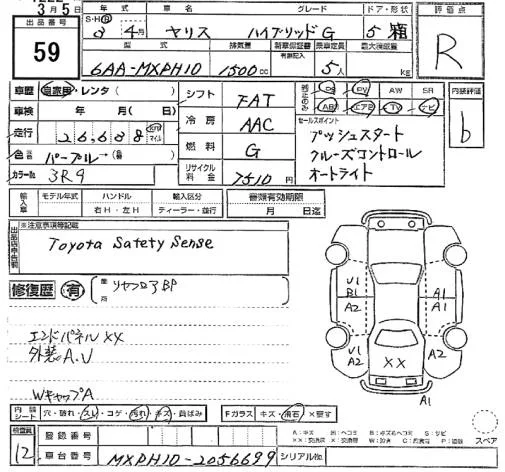 3月5日
出品番号 59
年式 車名 グレード ドア・形状 評価点
S・H・R 3年4月 ヤリス ハイブリッドG 5 箱 R
型式 排気量 新車保証書 乗車定員 最大積載量
6AA-MXPH10 1500cc 有・無記入 5人 kg
車歴 自家用・レンタ( )
車検 年 月( 日)
走行 26,638 km マイル
色 パープル→( )
カラーNo 3R9
シフト FAT
冷房 AAC
燃料 G
リサイクル料金 7510円
PS PW AW SR
AB エアB TV ナビ
内装評価 b
セールスポイント
プッシュスタート
クルーズコントロール
オートライト
輸入車 モデル年式 ハンドル 輸入区分 審査有効期限
右H・左H ディーラー・並行 月 日迄
※注意事項等記載
Toyota Satety Sense
修復歴 有 箇所 リヤフロアBP
エンドパネルXX
外装A.U
WキャップA
U1
B1
A2
A1
A1
A2
A2
XX
A1
内装シート 穴・破れ・スレ・コゲ・汚れ・キズ・員ばみ Fガラス キズ・飛石・X要す
スペア
検査員 12
登録番号
車台番号 MXPH10-2056699 シリアルNo.